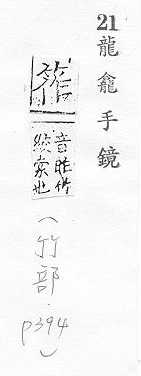 21龍龕手鏡
音
竹
索也
(竹部.
p394)